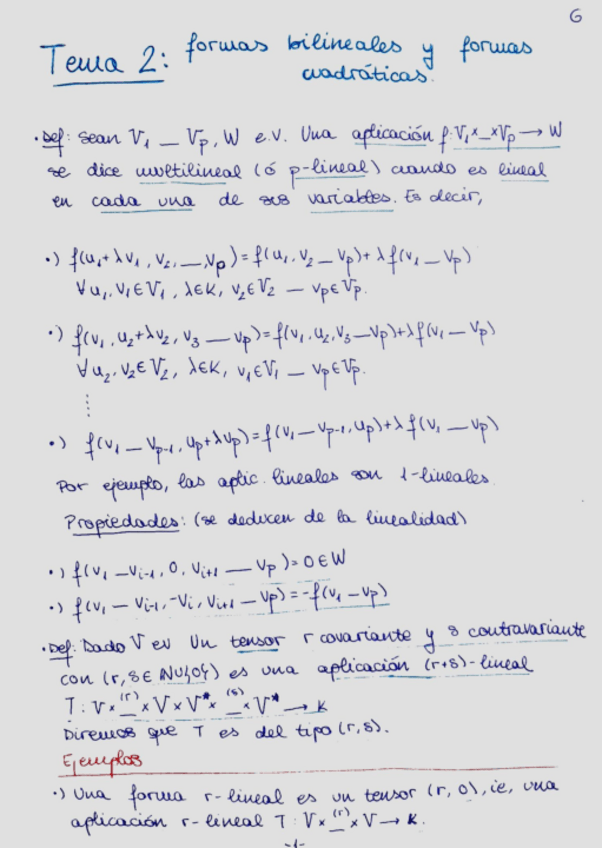 6
Tema 2: formas bilineales y formas
cuadráticas.
• Def: Sean V₁ _ Vp, W e.v. Una aplicación f: V₁x_xVp → W
se dice multilineal (ó p-lineal) cuando es lineal
en cada una de sus variables. Es decir,
•) f(u₁+λv₁, v₂, __, vp) = f(u₁, v₂ _ vp) + λf(v₁ _ vp)
∀u₁, v₁∈V₁, λ∈K, v₂∈V₂ _ vp∈Vp.
•) f(v₁, u₂+λv₂, v₃ __ vp) = f(v₁, u₂, v₃ _ vp) + λf(v₁ _ vp)
∀u₂, v₂∈V₂, λ∈K, v₁∈V₁ _ vp∈Vp.
⋮
•) f(v₁ _ vp-1, up+λvp) = f(v₁ _ vp-1, up) + λf(v₁ _ vp)
Por ejemplo, las aplic. lineales son 1-lineales.
Propiedades: (se deducen de la linealidad)
•) f(v₁ _ vi-1, 0, vi+1 __ vp) = 0∈W
•) f(v₁ _ vi-1, -vi, vi+1 _ vp) = -f(v₁ _ vp)
• Def: Dado V ev Un tensor r covariante y s contravariante
con (r, s ∈ ℕ∪{0}) es una aplicación (r+s)-lineal
T: V x (r) x V x V* x (s) x V* → K
Diremos que T es del tipo (r, s).
Ejemplos
•) Una forma r-lineal es un tensor (r, 0), ie, una
aplicación r-lineal T: V x (r) x V → K.
-1-